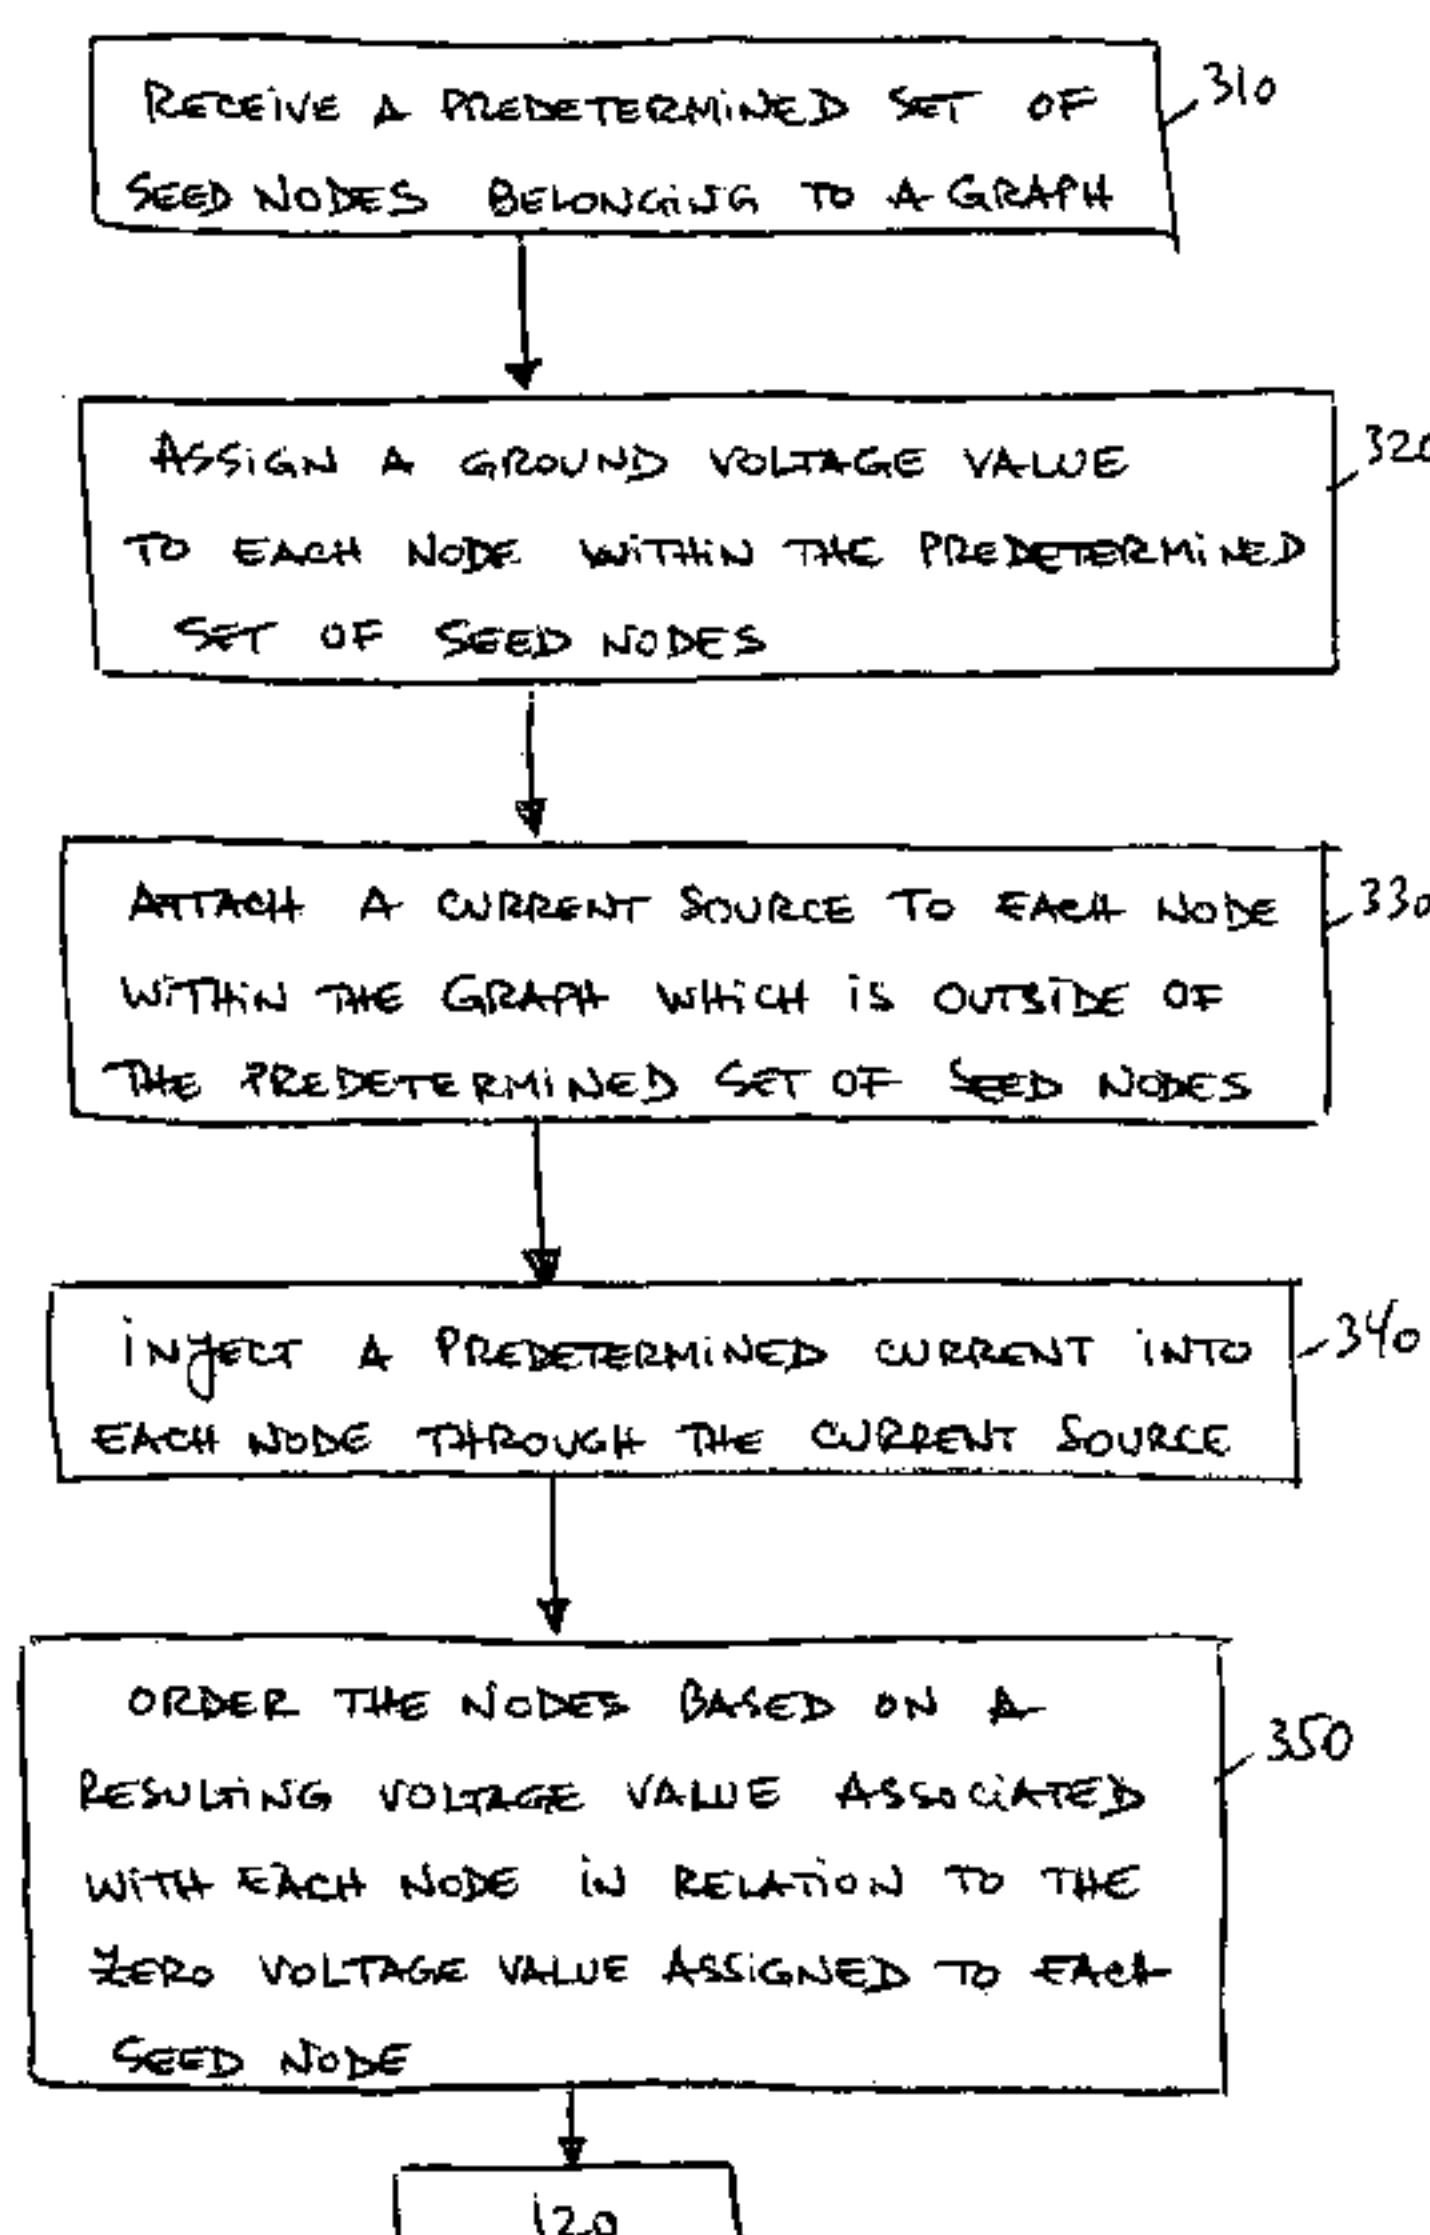 RECEIVE A PREDETERMINED SET OF
SEED NODES BELONGING TO A GRAPH
310
ASSIGN A GROUND VOLTAGE VALUE
TO EACH NODE WITHIN THE PREDETERMINED
SET OF SEED NODES
320
ATTACH A CURRENT SOURCE TO EACH NODE
WITHIN THE GRAPH WHICH IS OUTSIDE OF
THE PREDETERMINED SET OF SEED NODES
330
INJECT A PREDETERMINED CURRENT INTO
EACH NODE THROUGH THE CURRENT SOURCE
340
ORDER THE NODES BASED ON A
RESULTING VOLTAGE VALUE ASSOCIATED
WITH EACH NODE IN RELATION TO THE
ZERO VOLTAGE VALUE ASSIGNED TO EACH
SEED NODE
350
120